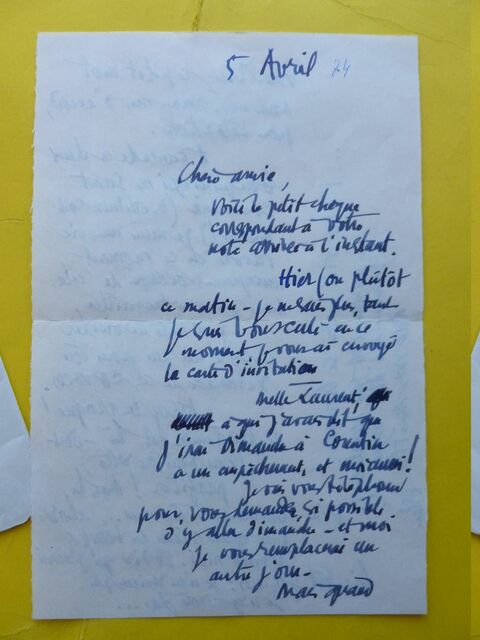 5 Avril 74
Chère amie,
Voici le petit cheque
correspondant à votre
note arrivée à l'instant.
Hier (ou plûtot
ce matin - je ne sais plus, tant
je suis bousculé en ce
moment je vous ai envoyé
la carte d'invitation
Melle Laurent,
à qui j'avais dit que
j'irai Dimanche à
a un empêchement, et moi aussi!
Je vais vous téléphoner
pour vous demander, si possible
d'y aller dimanche - et moi
je vous remplacerai un
autre jour -
Mais quand